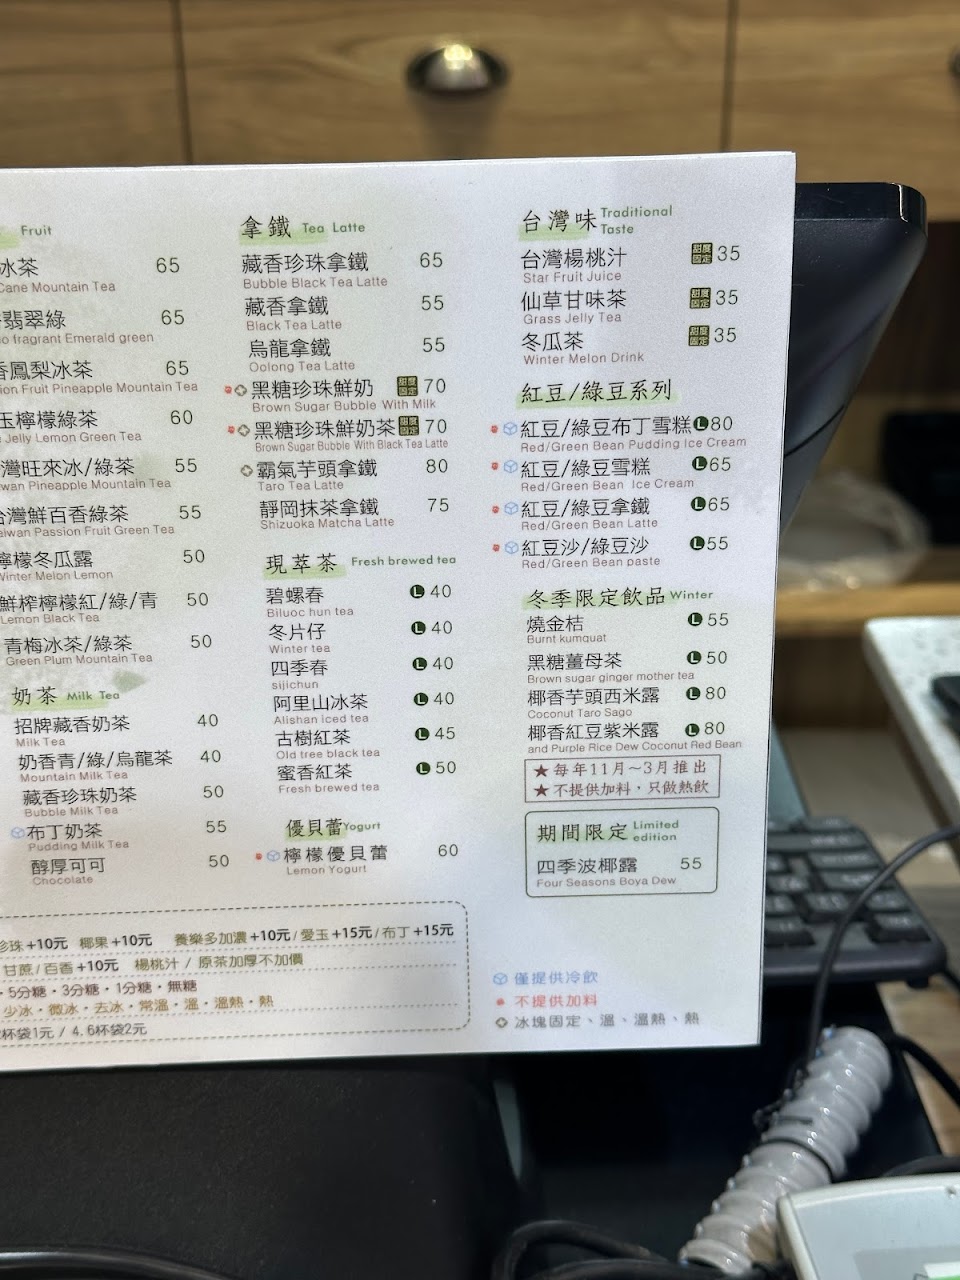 Fruit
冰茶 65
Cane Mountain Tea
翡翠綠 65
o fragrant Emerald green
香鳳梨冰茶 65
ion Fruit Pineapple Mountain Tea
玉檸檬綠茶 60
Jelly Lemon Green Tea
灣旺來冰/綠茶 55
wan Pineapple Mountain Tea
台灣鮮百香綠茶 55
aiwan Passion Fruit Green Tea
檸檬冬瓜露 50
Winter Melon Lemon
鮮榨檸檬紅/綠/青 50
Lemon Black Tea
青梅冰茶/綠茶 50
Green Plum Mountain Tea
奶茶 Milk Tea
招牌藏香奶茶 40
Milk Tea
奶香青/綠/烏龍茶 40
Mountain Milk Tea
藏香珍珠奶茶 50
Bubble Milk Tea
布丁奶茶 55
Pudding Milk Tea
醇厚可可 50
Chocolate
拿鐵 Tea Latte
藏香珍珠拿鐵 65
Bubble Black Tea Latte
藏香拿鐵 55
Black Tea Latte
烏龍拿鐵 55
Oolong Tea Latte
黑糖珍珠鮮奶 甜度固定 70
Brown Sugar Bubble With Milk
黑糖珍珠鮮奶茶 甜度固定 70
Brown Sugar Bubble With Black Tea Latte
霸氣芋頭拿鐵 80
Taro Tea Latte
靜岡抹茶拿鐵 75
Shizuoka Matcha Latte
現萃茶 Fresh brewed tea
碧螺春 L 40
Biluoc hun tea
冬片仔 L 40
Winter tea
四季春 L 40
sijichun
阿里山冰茶 L 40
Alishan iced tea
古樹紅茶 L 45
Old tree black tea
蜜香紅茶 L 50
Fresh brewed tea
優貝蕾 Yogurt
檸檬優貝蕾 60
Lemon Yogurt
台灣味 Traditional Taste
台灣楊桃汁 甜度固定 35
Star Fruit Juice
仙草甘味茶 甜度固定 35
Grass Jelly Tea
冬瓜茶 甜度固定 35
Winter Melon Drink
紅豆/綠豆系列
紅豆/綠豆布丁雪糕 L 80
Red/Green Bean Pudding Ice Cream
紅豆/綠豆雪糕 L 65
Red/Green Bean Ice Cream
紅豆/綠豆拿鐵 L 65
Red/Green Bean Latte
紅豆沙/綠豆沙 L 55
Red/Green Bean paste
冬季限定飲品 Winter
燒金桔 L 55
Burnt kumquat
黑糖薑母茶 L 50
Brown sugar ginger mother tea
椰香芋頭西米露 L 80
Coconut Taro Sago
椰香紅豆紫米露 L 80
and Purple Rice Dew Coconut Red Bean
★每年11月～3月推出
★不提供加料，只做熱飲
期間限定 Limited edition
四季波椰露 55
Four Seasons Boya Dew
珍珠+10元 椰果+10元 養樂多加濃+10元/愛玉+15元/布丁+15元
甘蔗/百香+10元 楊桃汁/原茶加厚不加價
・5分糖・3分糖・1分糖・無糖
少冰・微冰・去冰・常溫・溫・溫熱・熱
杯袋1元 / 4.6杯袋2元
僅提供冷飲
不提供加料
冰塊固定、溫、溫熱、熱